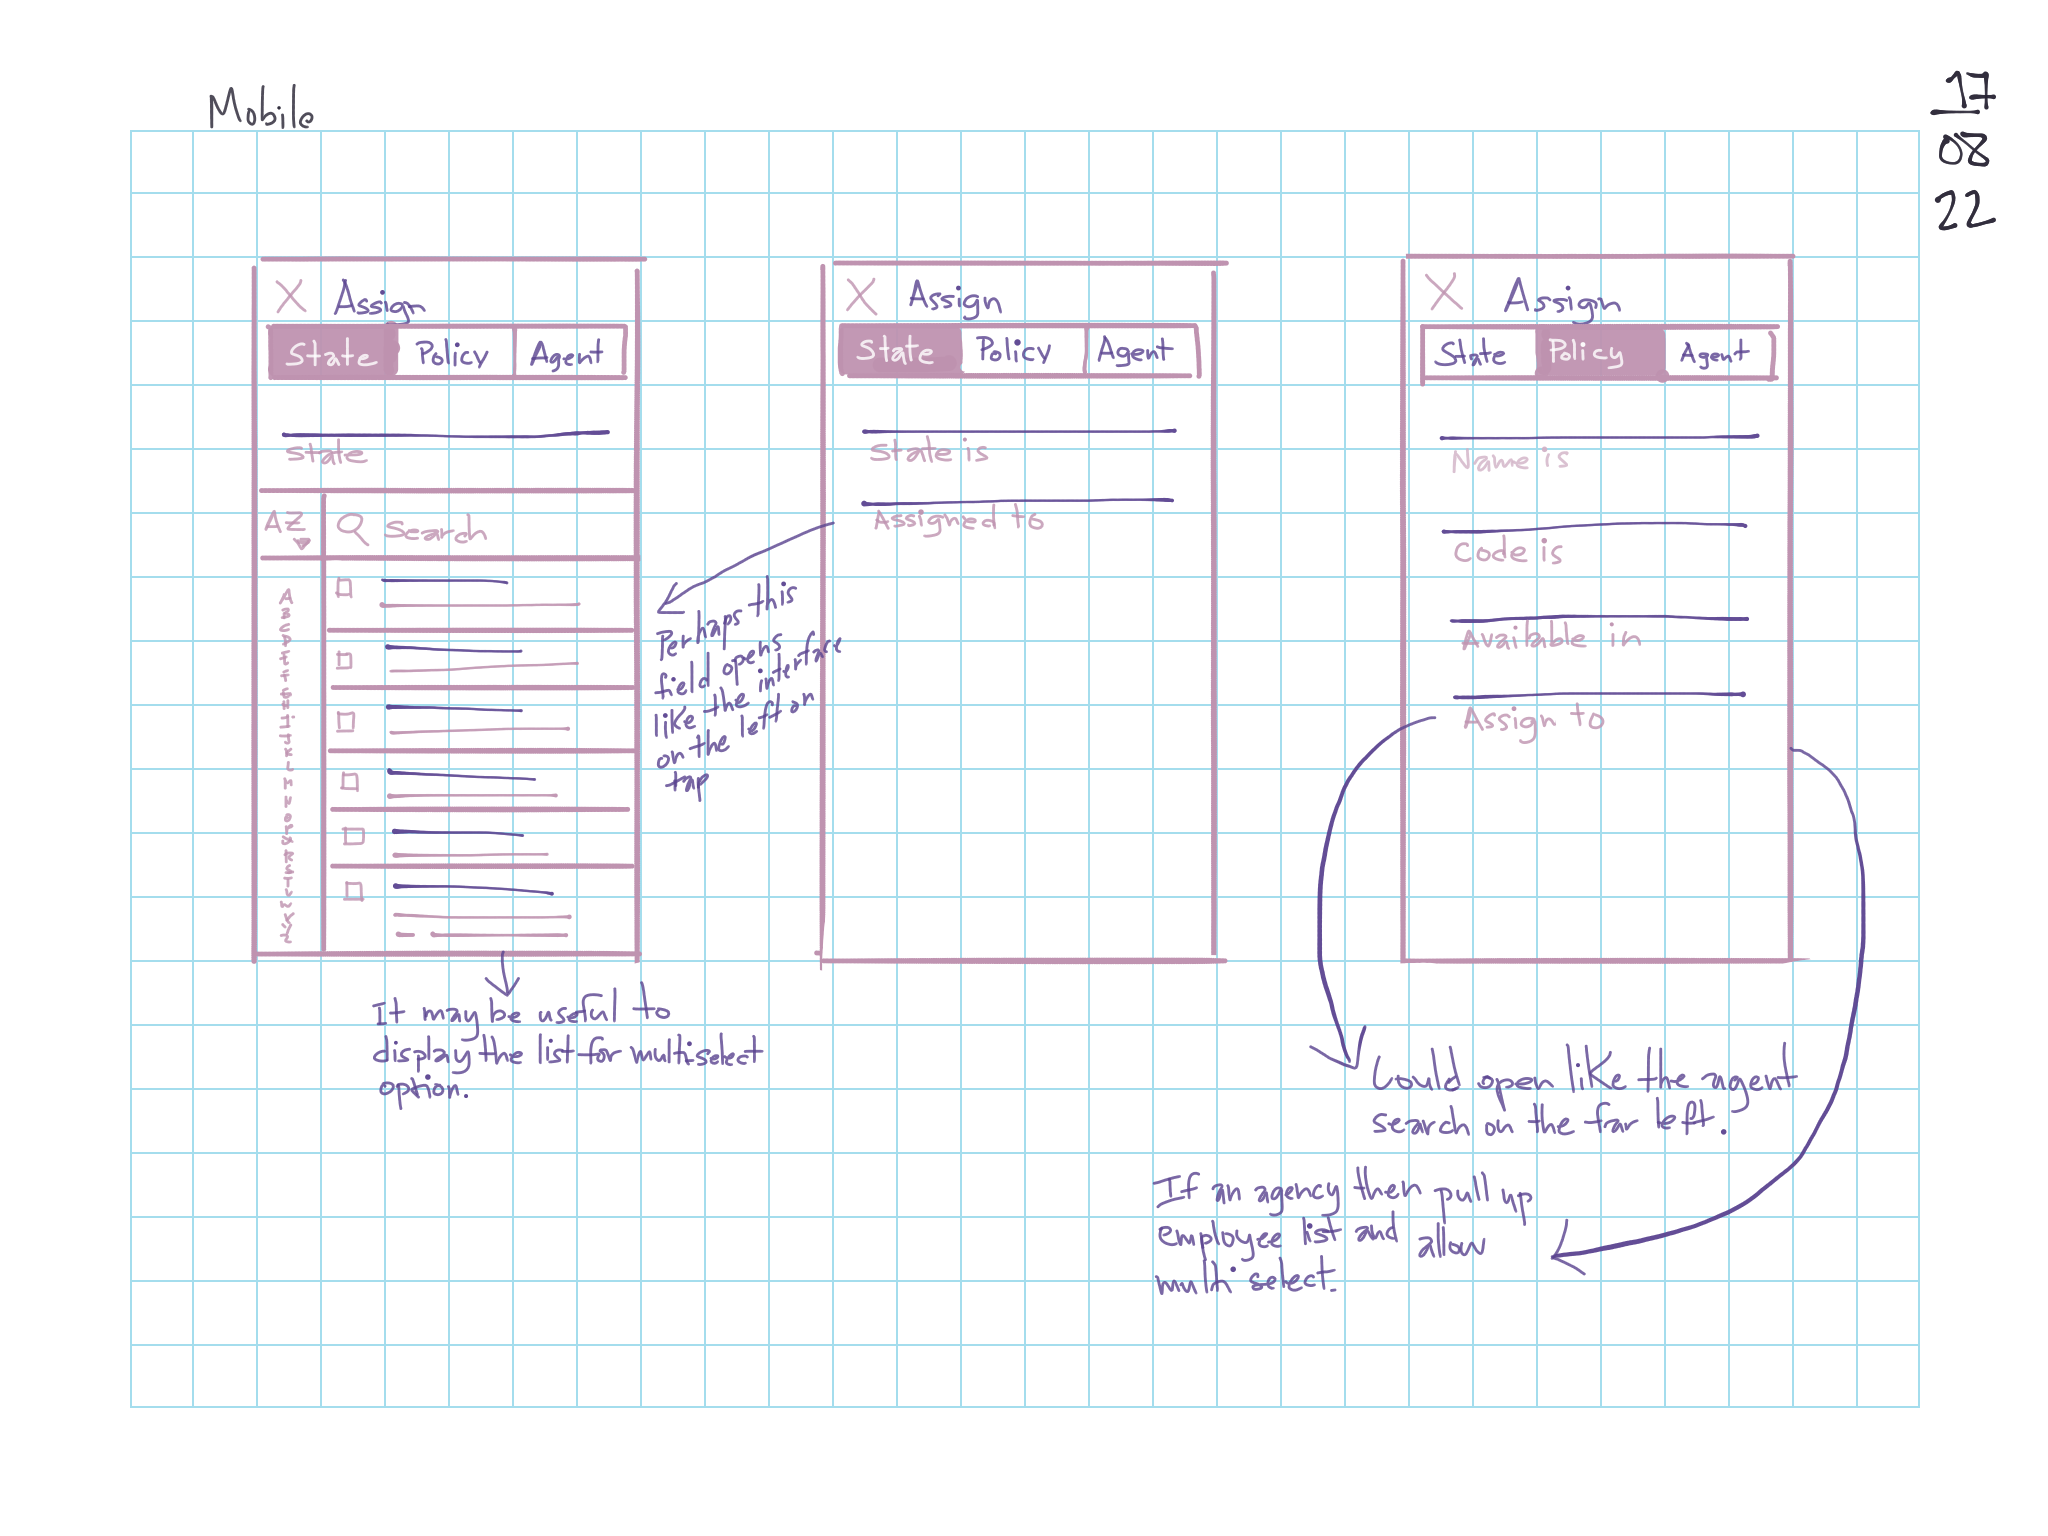 Mobile
17
08
22
X Assign
State Policy Agent
State
AZ Search
A
B
C
D
E
F
G
H
I
J
K
L
M
N
O
P
Q
R
S
T
V
W
X
Y
Z
It may be useful to
display the list for multiselect
option.
X Assign
State Policy Agent
State is
Assigned to
Perhaps this
field opens
like the interface
on the left on
tap
X Assign
State Policy Agent
Name is
Code is
Available in
Assign to
Could open like the agent
search on the far left.
If an agency then pull up
employee list and allow
multi select.